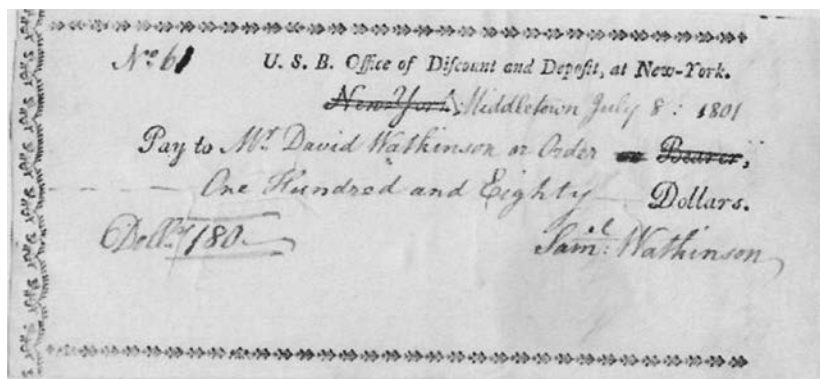 No 61 U. S. B. Office of Discount and Deposit, at New-York.
New-York, Middletown July 8: 1801
Pay to Mr David Watkinson or Order or Bearer,
One Hundred and Eighty Dollars.
Dolls 180 Saml: Watkinson